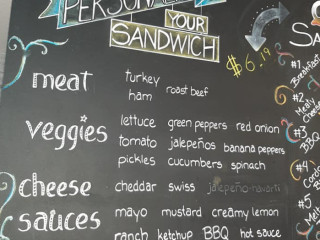 YOUR
SANDWICH
$6.19
meat
turkey roast beef
ham
veggies
lettuce green peppers red onion
tomato jalepeños banana peppers
pickles cucumbers spinach
cheese
cheddar swiss jalepeño-havarti
sauces
mayo mustard creamy lemon
ranch ketchup BBQ hot sauce
#1
Breakfast
#2
#3
BBQ
#4
#5